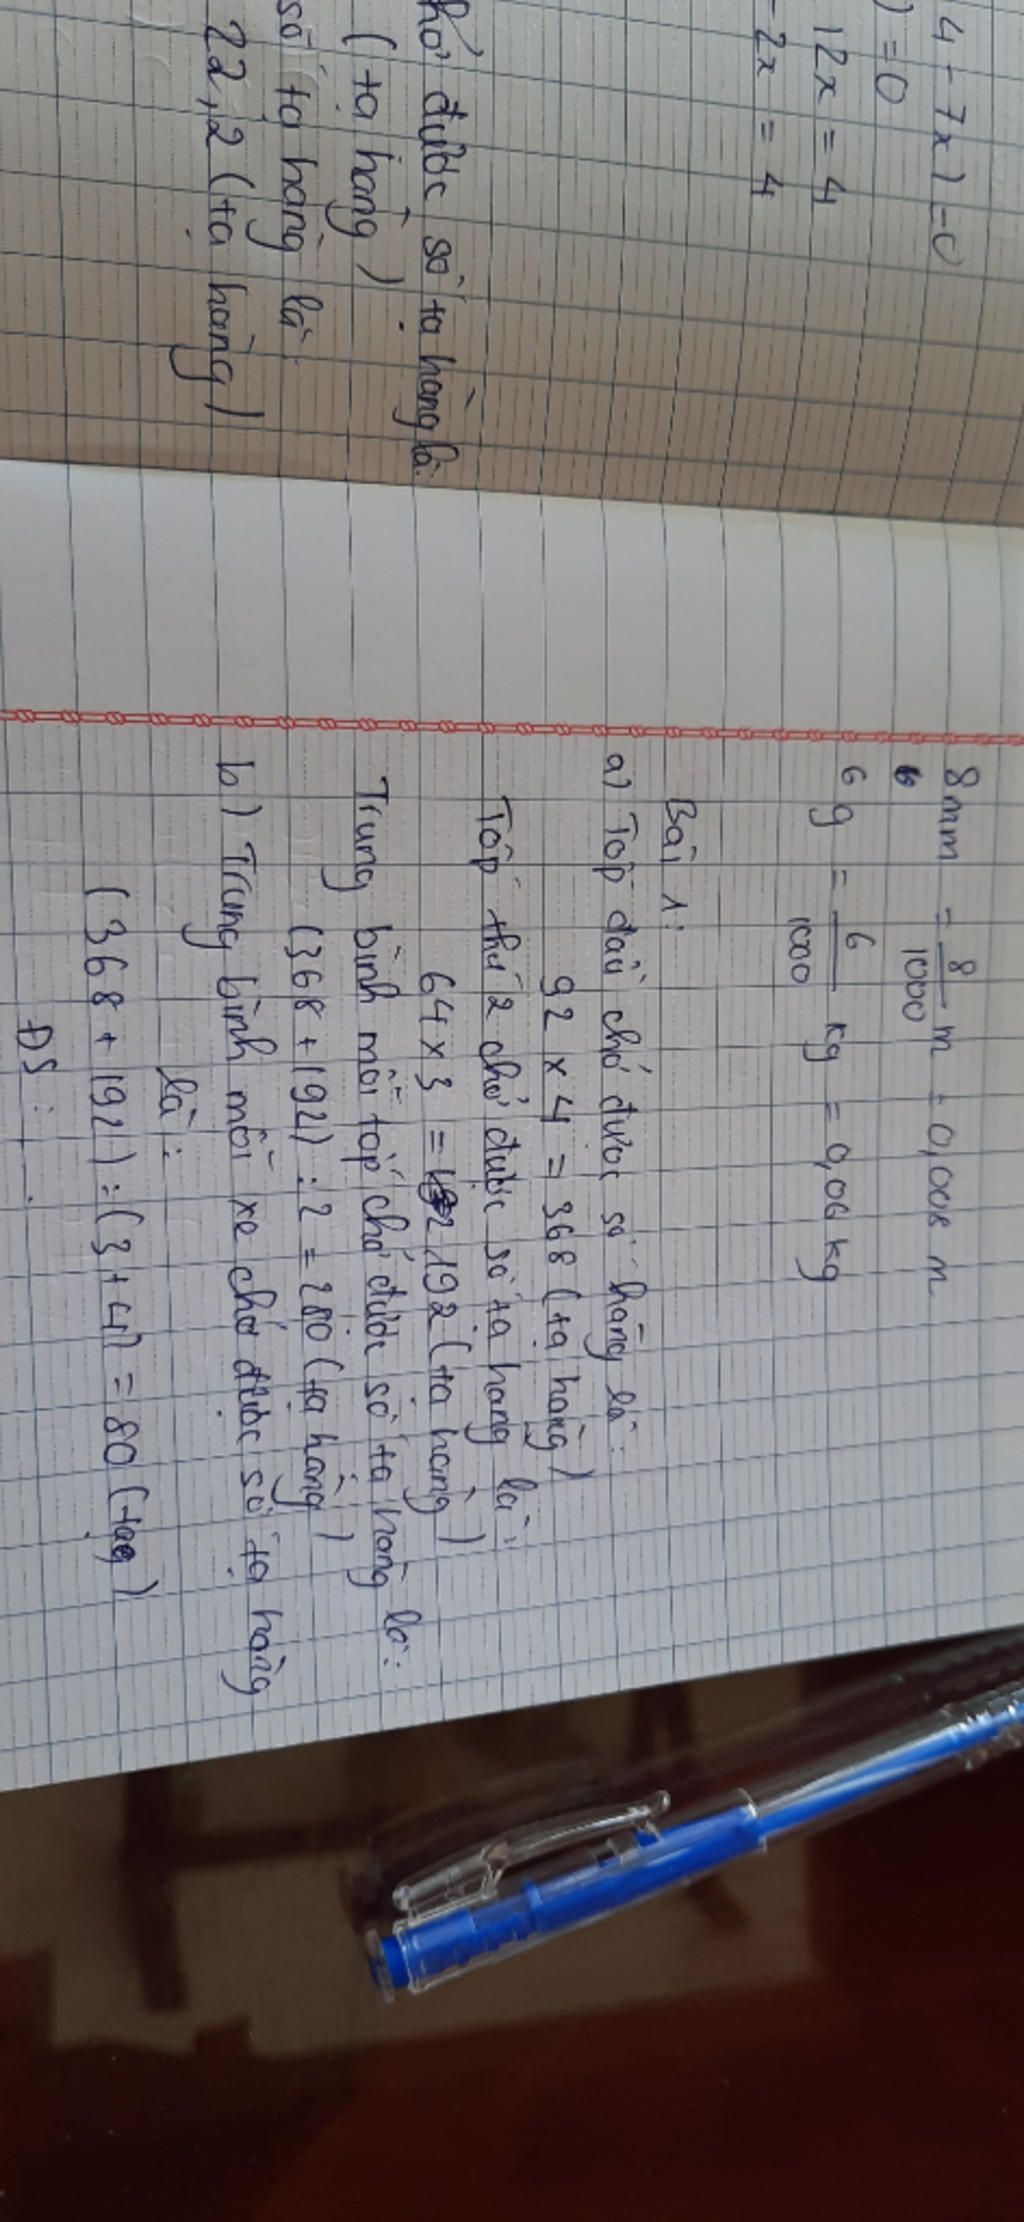 4 - 7x) = 0
) = 0
12x = 4
- 2x = 4
hở được số tạ hàng là:
(tạ hàng)
số tạ hàng là:
22,2 (tạ hàng)
8mm = 8/1000 m = 0,008 m
6 g = 6/1000 kg = 0,06 kg
Bài 1:
a) Tốp đầu chở được số hàng là:
92 x 4 = 368 (tạ hàng)
Tốp thứ 2 chở được số tạ hàng là:
64 x 3 = 192 (tạ hàng)
Trung bình mỗi tốp chở được số tạ hàng là:
(368 + 192) : 2 = 280 (tạ hàng)
b) Trung bình mỗi xe chở được số tạ hàng
là:
(368 + 192) : (3 + 4) = 80 (tạ)
ĐS: